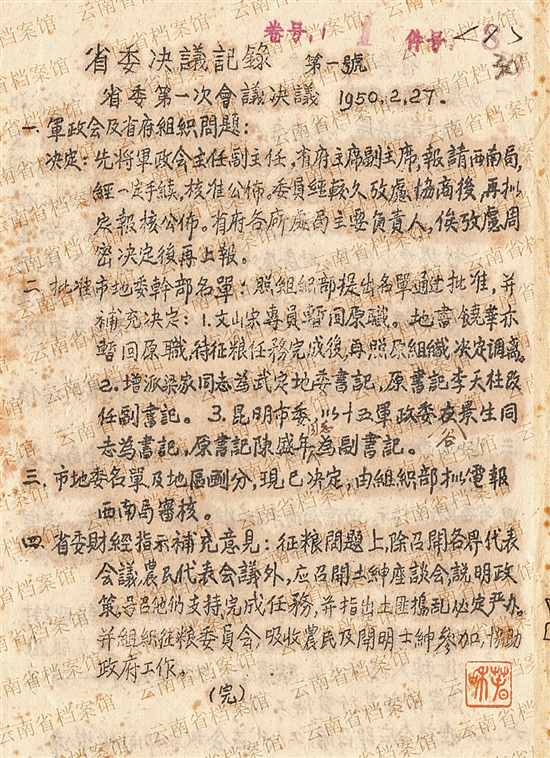 卷号,1 1 件号. 8 <7>
30
省委决議記錄 第一號
省委第一次會議决議 1950.2.27.
一.軍政会及省府組织問題:
决定:先将軍政会主任副主任,省府主席副主席,報請西南局,
經一定手續,核准公佈。委員經較久攷慮協商後,再批
定報核公佈。省府各厛處局主要負責人,俟攷慮周
密决定後再上報。
二.批准市地委幹部名單:照組织部提出名單通过批准,并
補充决定:1.文山宋專員暫回原職。地書饒華亦
暫回原職,待征粮任務完成後,再照原組織决定調离。
2.增派梁家同志為武定地委書記,原書記李天柱改
任副書記。3.昆明市委,以十五軍政委谷景生同
志為書記,原書記陳盛年同志為副書記。
三.市地委名單及地區劃分,現已决定,由組织部拟電報
西南局審核。
四.省委財經指示補充意見:征粮問題上,除召開各界代表
会議農民代表会議外,应召開士紳座談会,説明政
策,号召他们支持,完成任務,并指出土匪搗乱必定严办。
并組織征粮委員会,吸收農民及開明士紳參加,協助
政府工作。
(完)
云南省档案馆